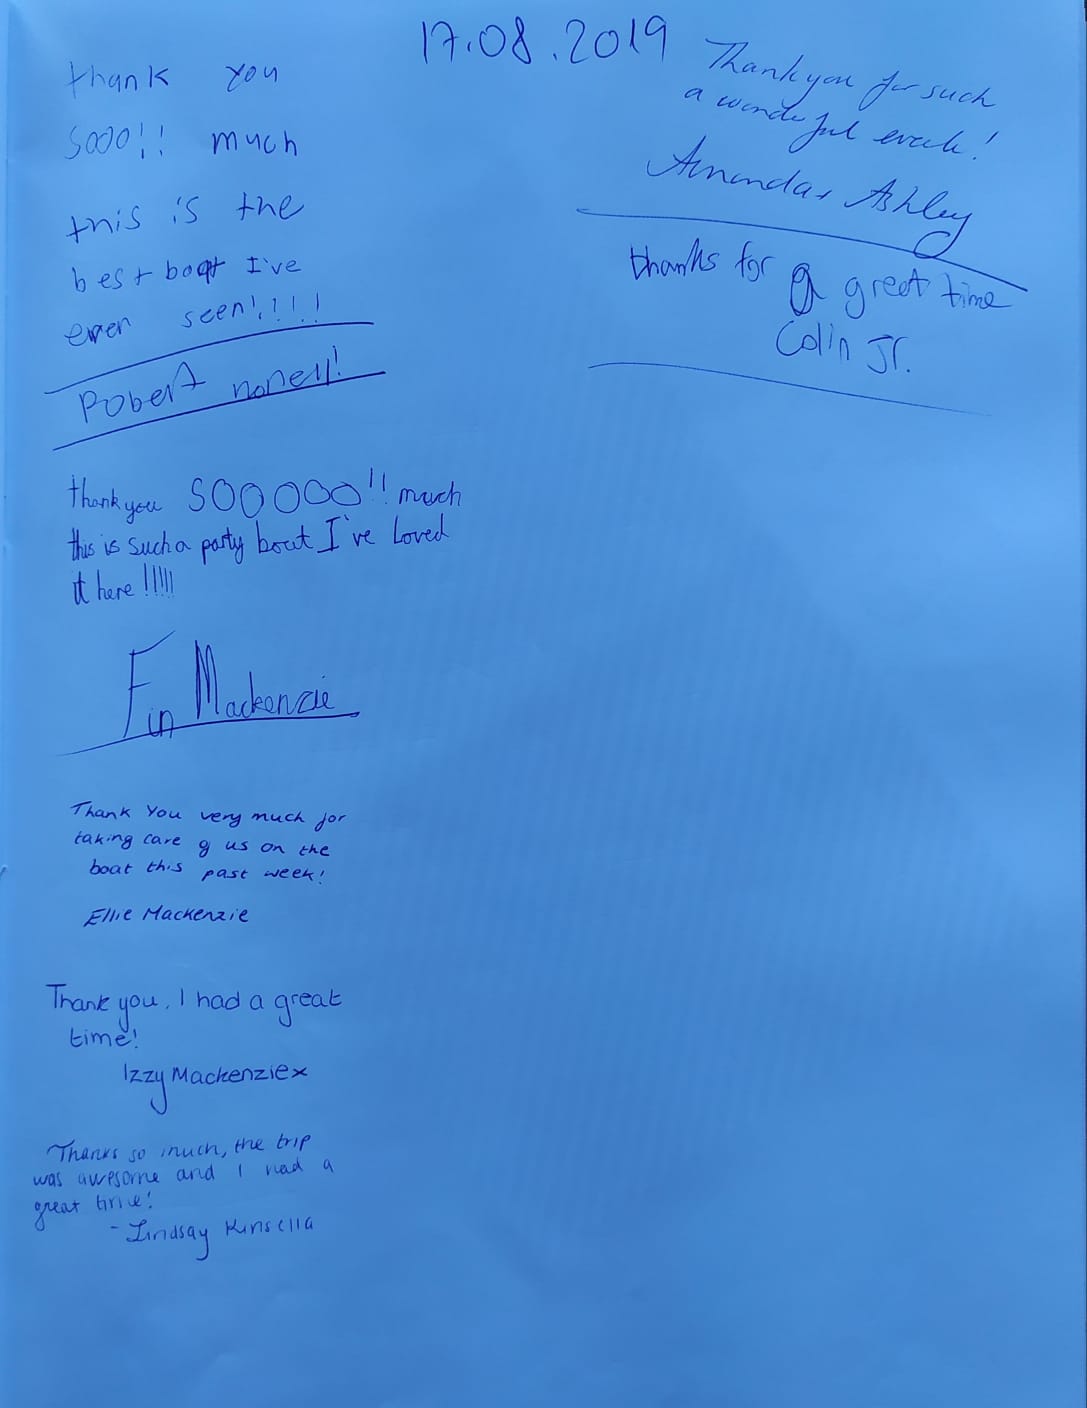 17.08.2019
thank you
sooo!! much
this is the
best boat I've
ever seen!!!!!
Robert
thank you SOOOOOO!! much
this is such a party boat I've Loved
it here !!!!!
Fin Mackenzie
Thank You very much for
taking care of us on the
boat this past week!
Ellie Mackenzie
Thank you, I had a great
time!
Izzy Mackenzie x
Thanks so much, the trip
was awesome and I had a
great time!
- Lindsay Kinsella
Thank you for such
a wonderful
Ashley
thanks for a great time
Colin Jr.